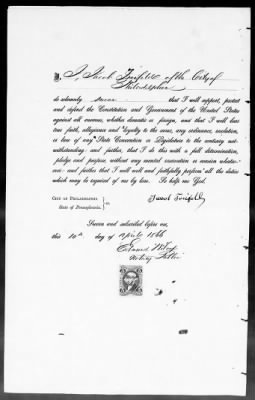 I, Jacob of the City of
Philadelphia
do solemnly swear that I will support, protect
and defend the Constitution and Government of the United States
against all enemies, whether domestic or foreign, and that I will bear
true faith, allegiance and loyalty to the same, any ordinance, resolution,
or law of any State Convention or Legislature to the contrary not-
withstanding; and further, that I do this with a full determination,
pledge and purpose, without any mental reservation or evasion whatso-
ever; and further that I will well and faithfully perform all the duties
which may be required of me by law. So help me God.
CITY OF PHILADELPHIA
State of Pennsylvania. } ss.
Jacob
Sworn and subscribed before me,
this 10th day of April 1866
Notary Public